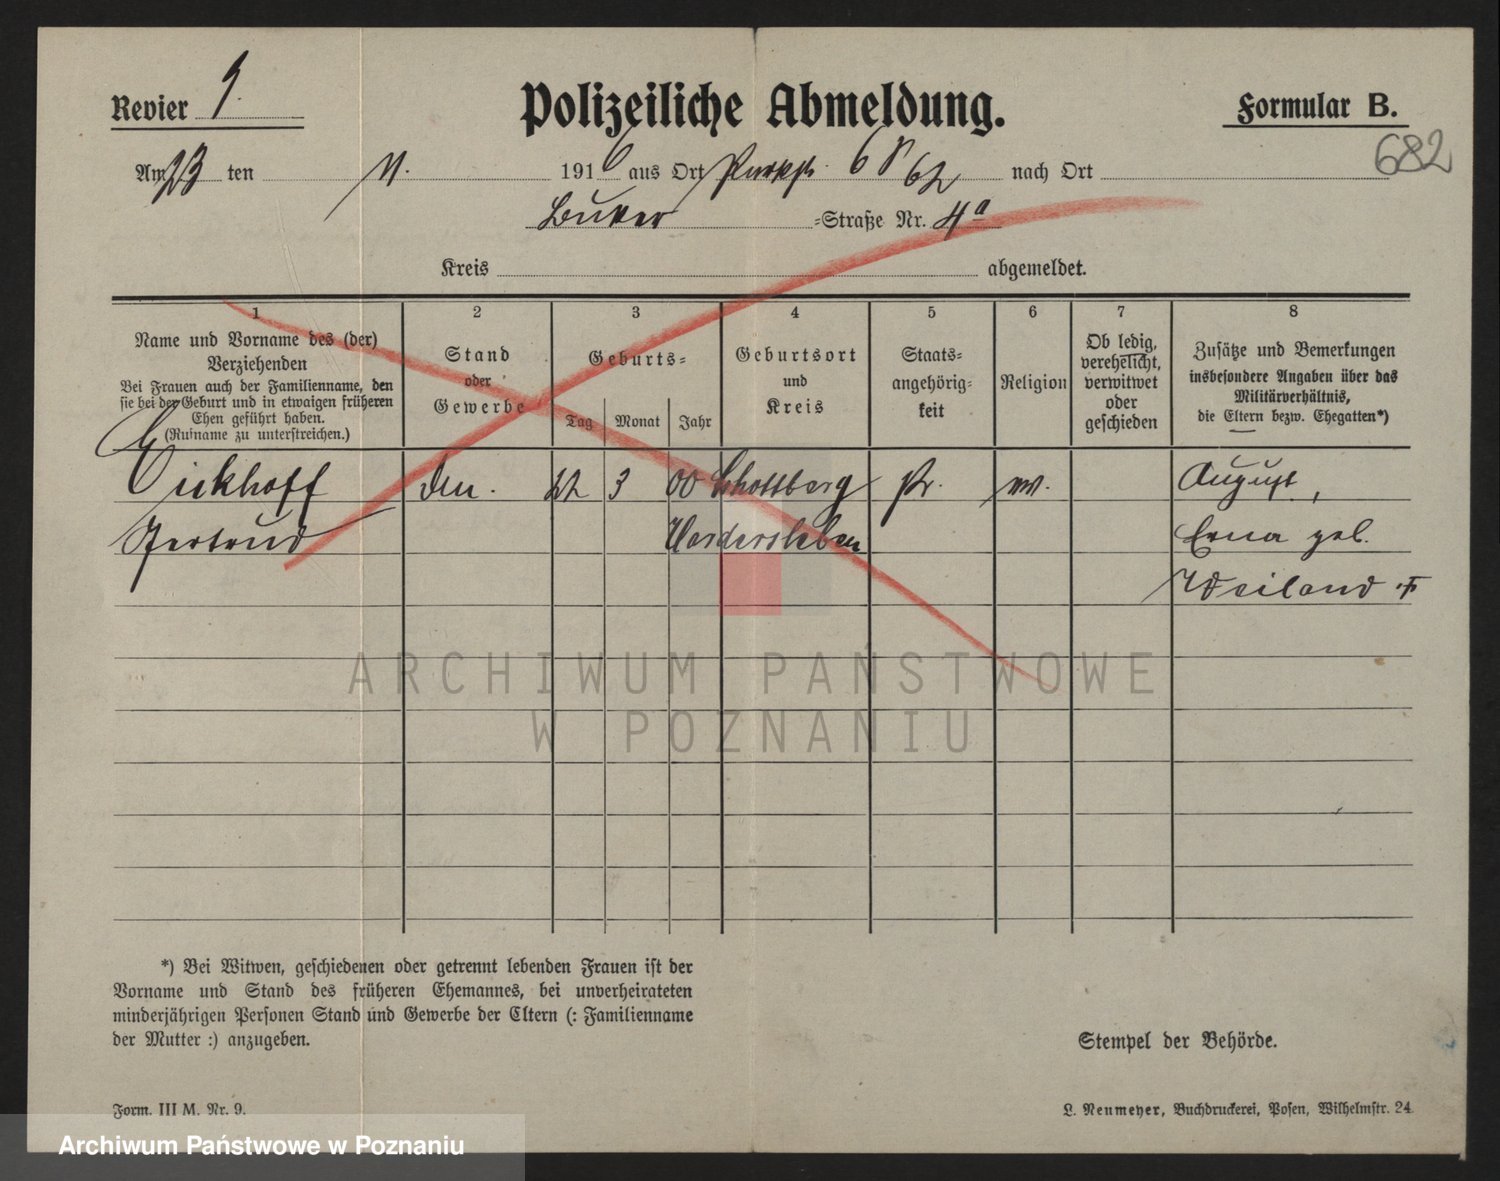 Revier 9.
Polizeiliche Abmeldung.
Formular B.
682
Am 23 ten 11. 1916 aus Ort nach Ort
Buker =Straße Nr. 4a
Kreis abgemeldet.
1 2 3 4 5 6 7 8
Name und Vorname des (der)
Verziehenden
Bei Frauen auch der Familienname, den
sie bei der Geburt und in etwaigen früheren
Ehen geführt haben.
(Rufname zu unterstreichen.)
Stand
oder
Gewerbe
Geburts=
Tag Monat Jahr
Geburtsort
und
Kreis
Staats=
angehörig=
keit
Religion
Ob ledig,
verehelicht,
verwitwet
oder
geschieden
Zusätze und Bemerkungen
insbesondere Angaben über das
Militärverhältnis,
die Eltern bezw. Ehegatten*)
Eickhoff 22 3 00 Schottburg Pr. August,
Gertrud Hadersleben Erna geb.
Weiland †
ARCHIWUM PAŃSTWOWE
W POZNANIU
*) Bei Witwen, geschiedenen oder getrennt lebenden Frauen ist der
Vorname und Stand des früheren Ehemannes, bei unverheirateten
minderjährigen Personen Stand und Gewerbe der Eltern (: Familienname
der Mutter :) anzugeben.
Stempel der Behörde.
Form. III M. Nr. 9.
L. Neumeyer, Buchdruckerei, Posen, Wilhelmstr. 24
Archiwum Państwowe w Poznaniu